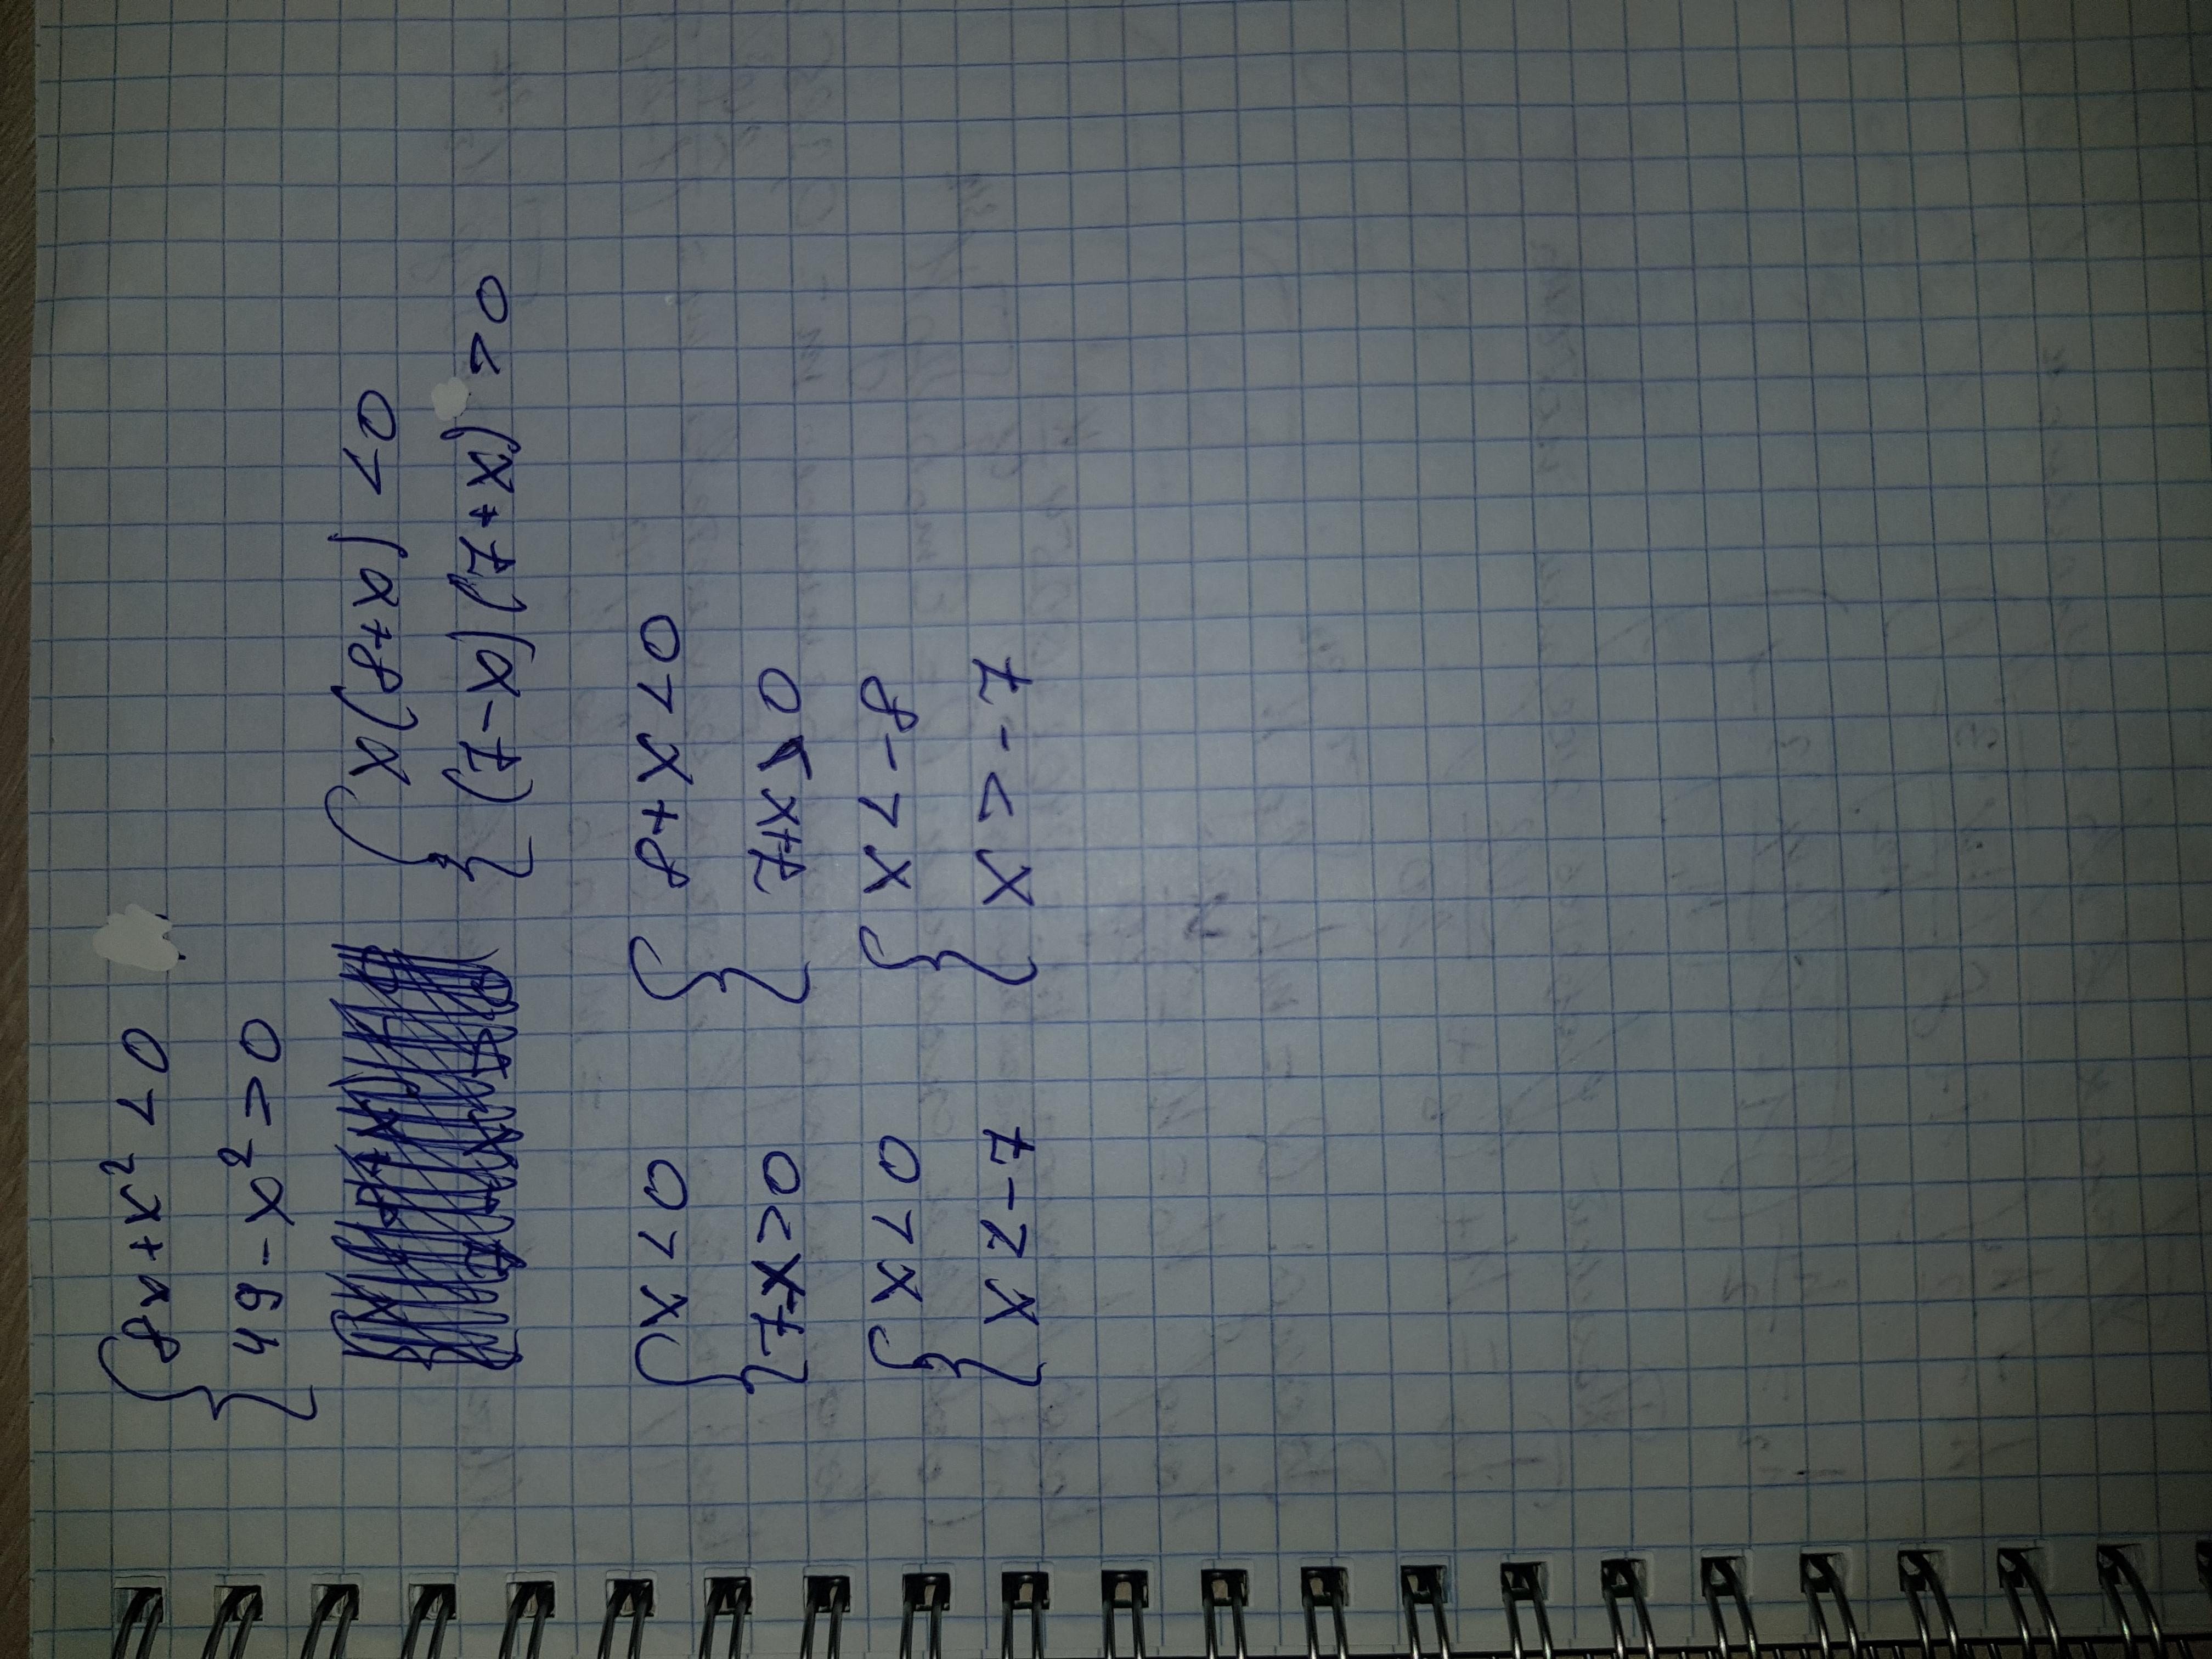 {8x+x² < 0
49-x² > 0
{x(8+x) < 0
(7-x)(7+x) > 0
{x < 0 {8+x < 0
7+x > 0 7+x > 0
{x < 0 {x < -8
x > -7 x > -7